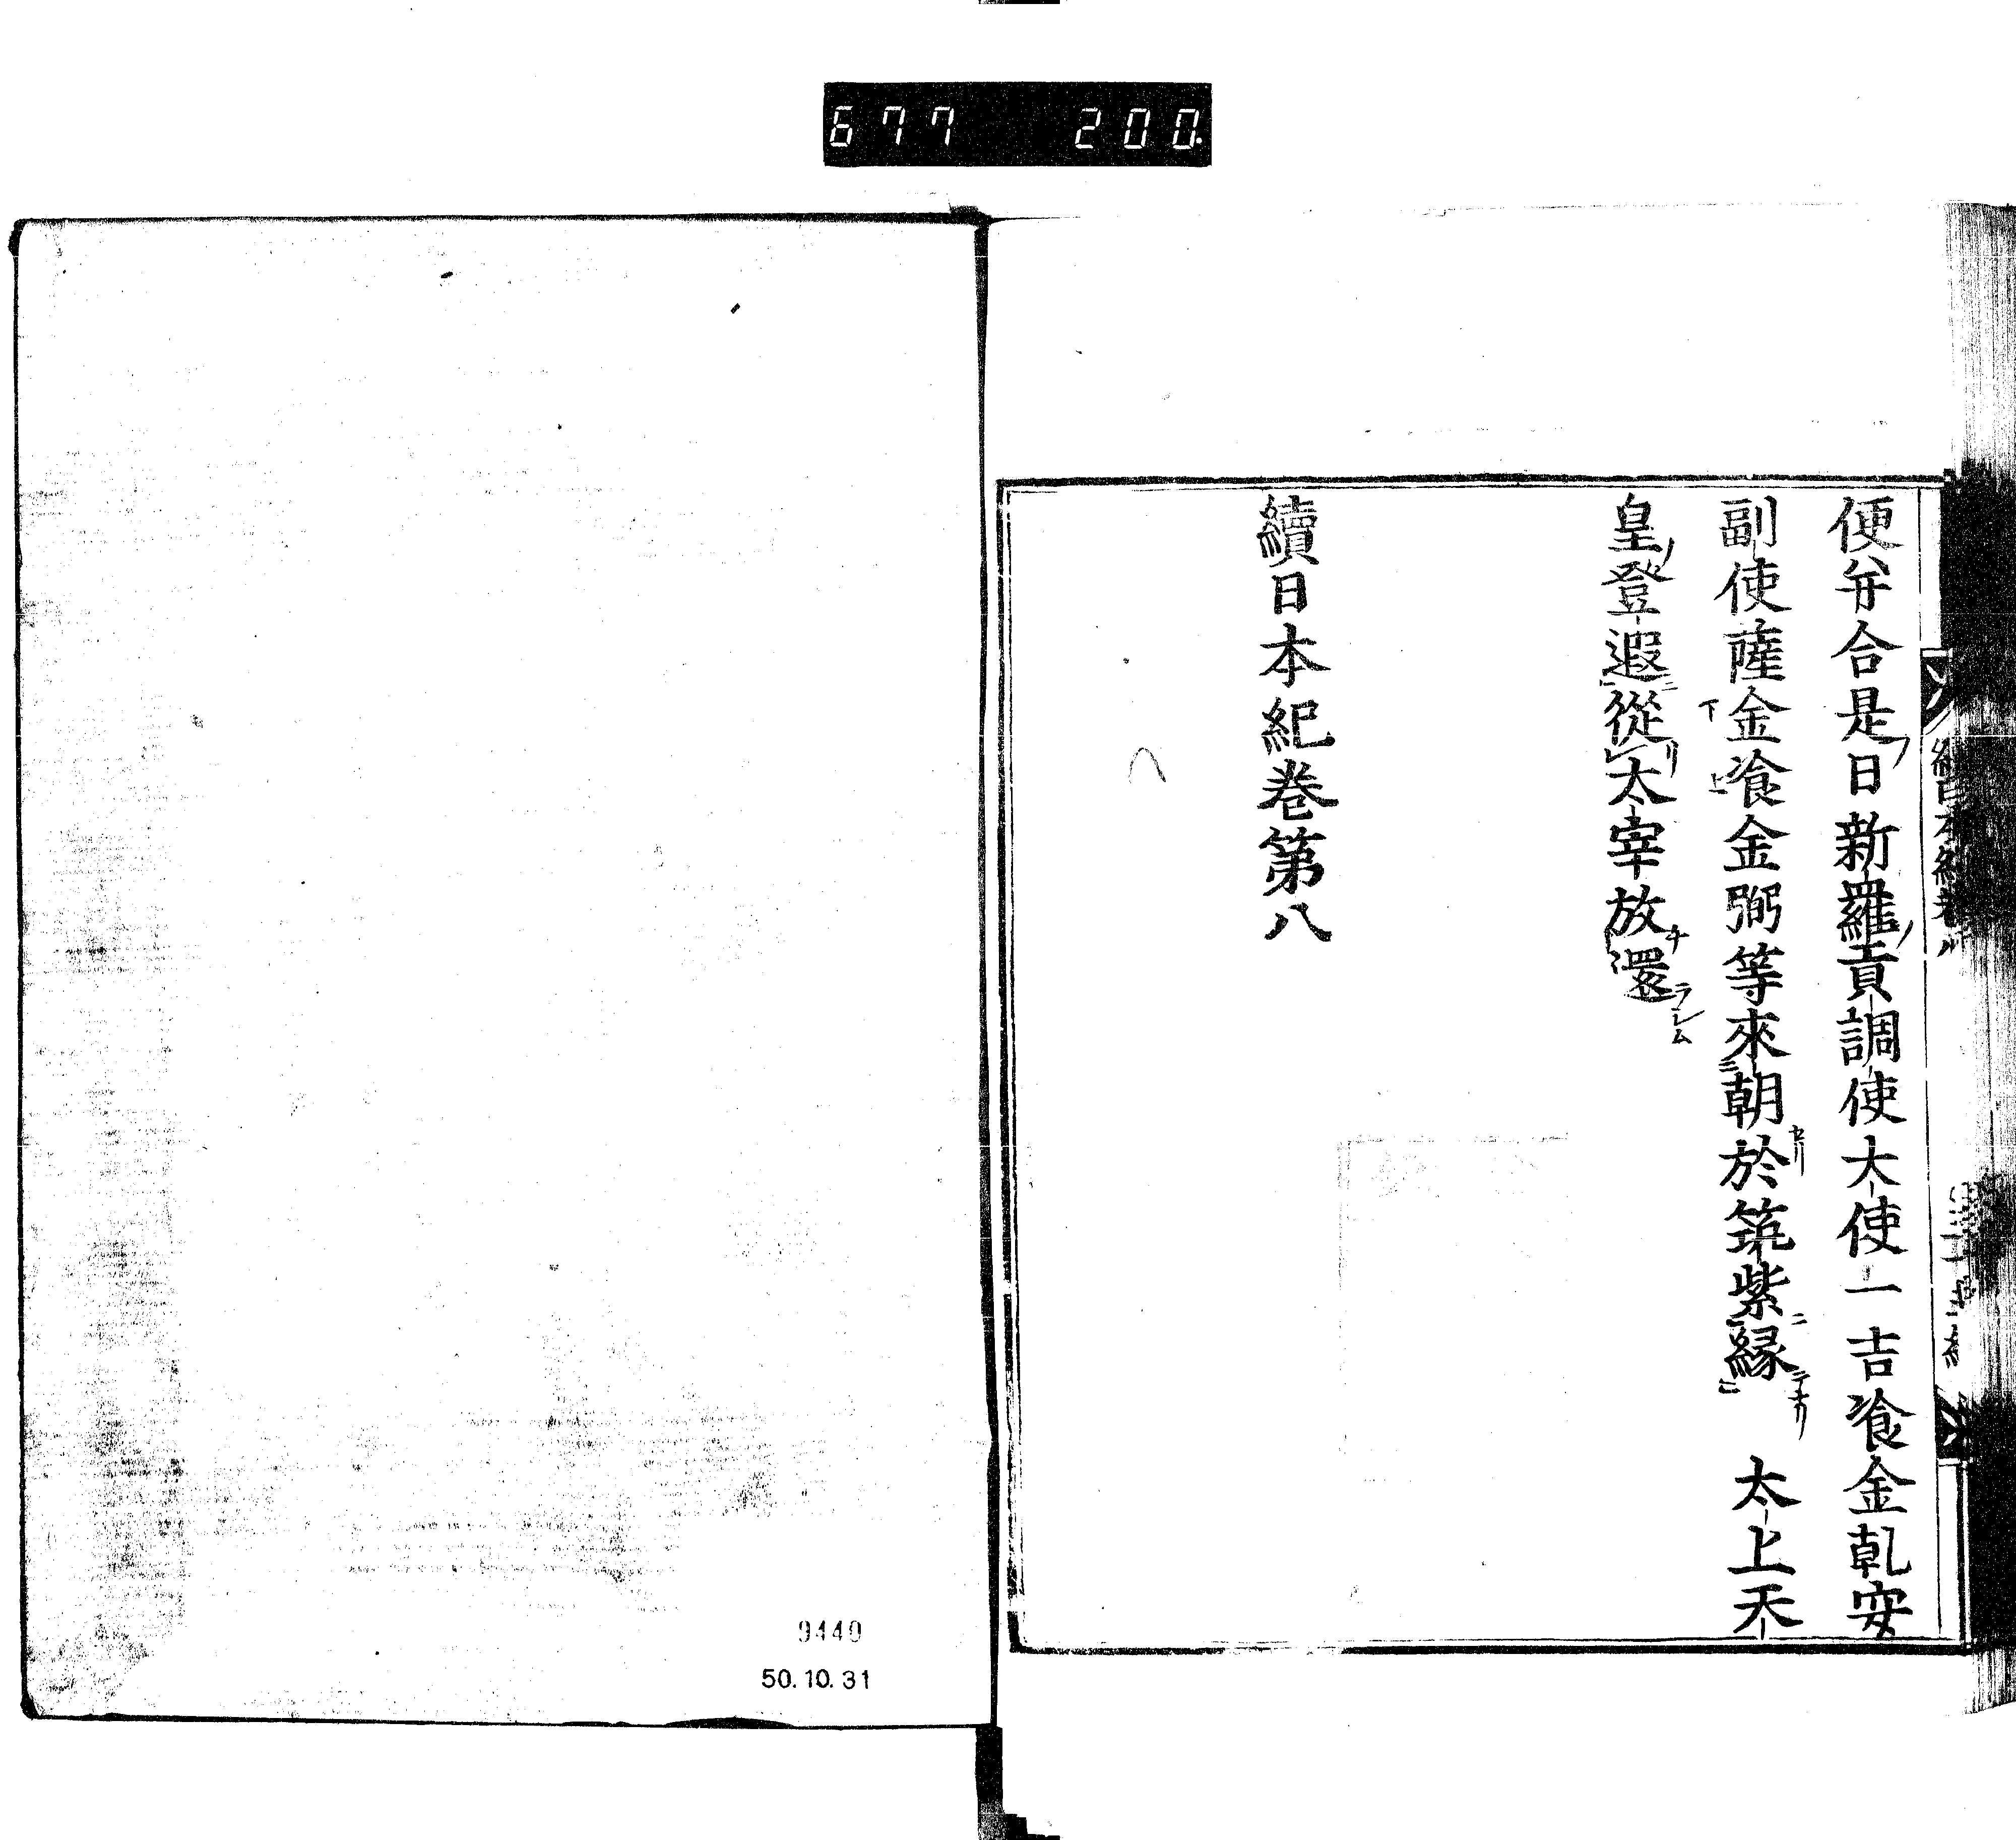 677 200.
便并合是日新羅貢調使大使一吉飡金乾安
副使薩金飡金弼等來朝於筑紫縁 太上天
皇登遐從太宰放還
續日本紀巻第八
9440
50.10.31